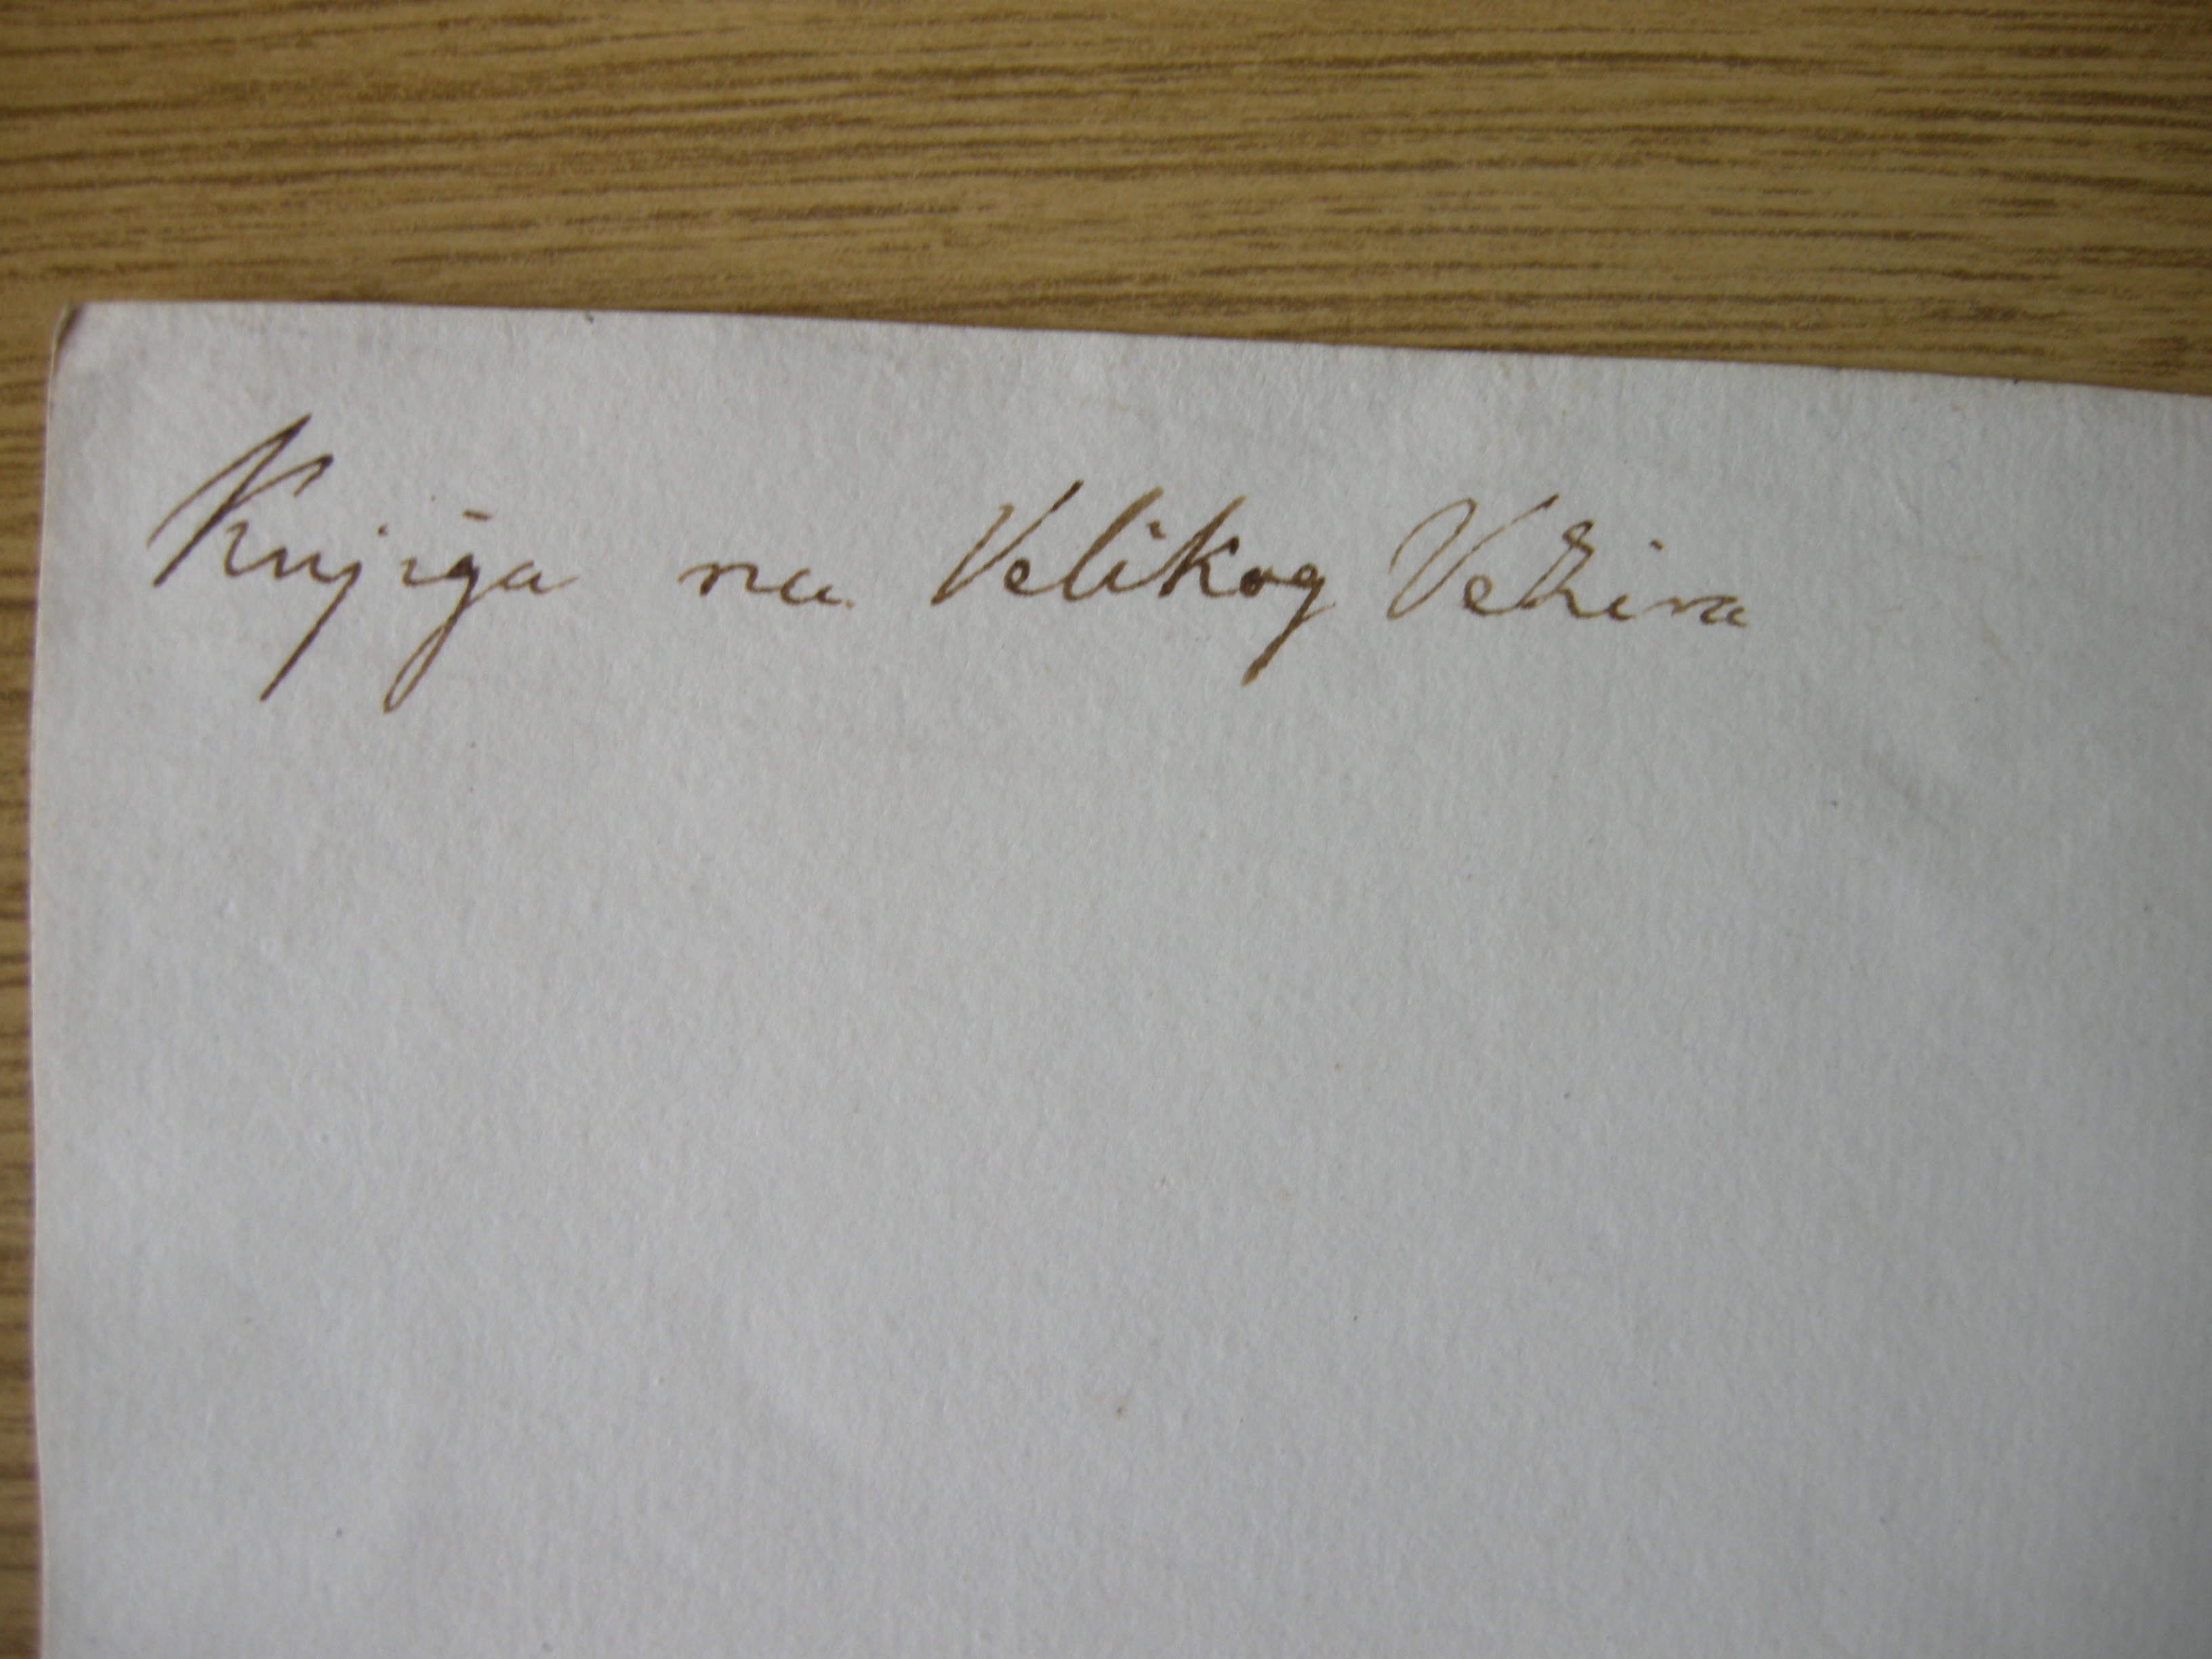 Knjiga na Velikog Vezira